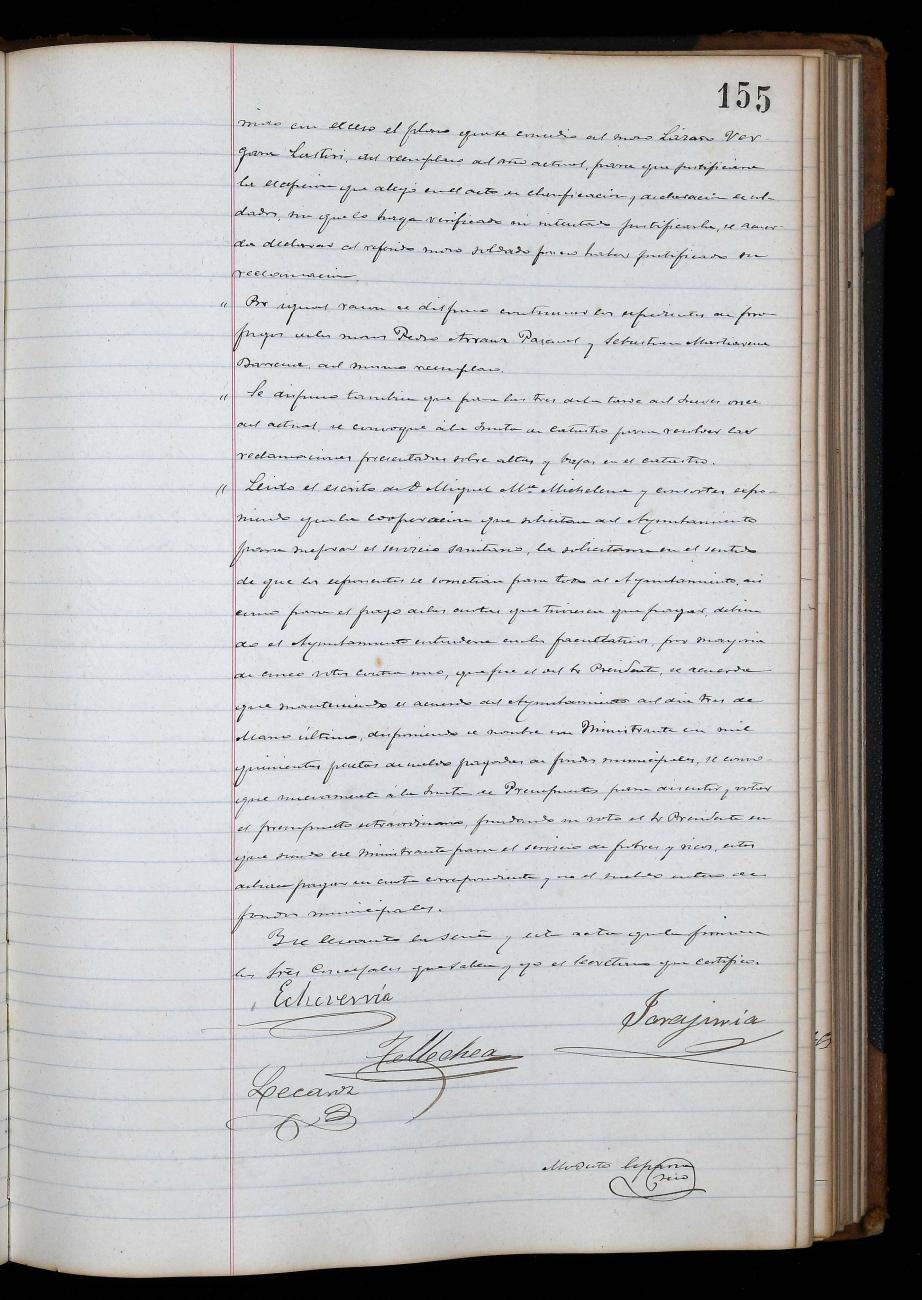 155
con exceso el plazo que se concedió al mozo Lázaro Ver-
gara Lastiri, del reemplazo del año actual, para que justificara
la excepción que alegó en el acto de clasificación y declaración de sol-
dados, sin que lo haya verificado ni intentado justificarla, se acuer-
da declarar al referido mozo soldado por no haber justificado su
reclamación.
" Por igual razon se dispuso continuar los espedientes de pro-
fugos de los mozos Pedro Arranz Pascual y Sebastian
Barrena, del mismo reemplazo.
" Se dispuso tambien que para las tres de la tarde del Jueves once
del actual, se convoque á la Junta de Catastro para resolver las
reclamaciones presentadas sobre altas y bajas en el catastro.
" Leido el escrito de D. Miguel Mª Michelena y consortes expo-
niendo que la cooperacion que solicitan del Ayuntamiento
para mejorar el servicio sanitario, la solicitaron en el sentido
de que los esponentes se sometian para todo al Ayuntamiento, asi
como para el pago de las cuotas que tuviesen que pagar, debien-
do el Ayuntamiento entenderse con los facultativos, por mayoria
de cinco votos contra uno, que fue el del Sr Presidente, se acuerda
que manteniendo el acuerdo del Ayuntamiento del dia tres de
Marzo último, disponiendo se nombre un Ministrante con mil
quinientas pesetas de sueldo pagadas de fondos municipales, se convo-
que nuevamente á la Junta de Presupuestos para discutir y votar
el presupuesto extraordinario, fundando su voto el Sr Presidente en
que siendo ese Ministrante para el servicio de pobres y ricos, estos
deben pagar su cuota correspondiente y no el sueldo entero de
fondos municipales.
Y se levantó la sesión y esta acta que la firman
los Sres Concejales que saben, y yo el Secretario que certifico.
Echeverría
Tellechea
Lecaroz
Modesto Esparza